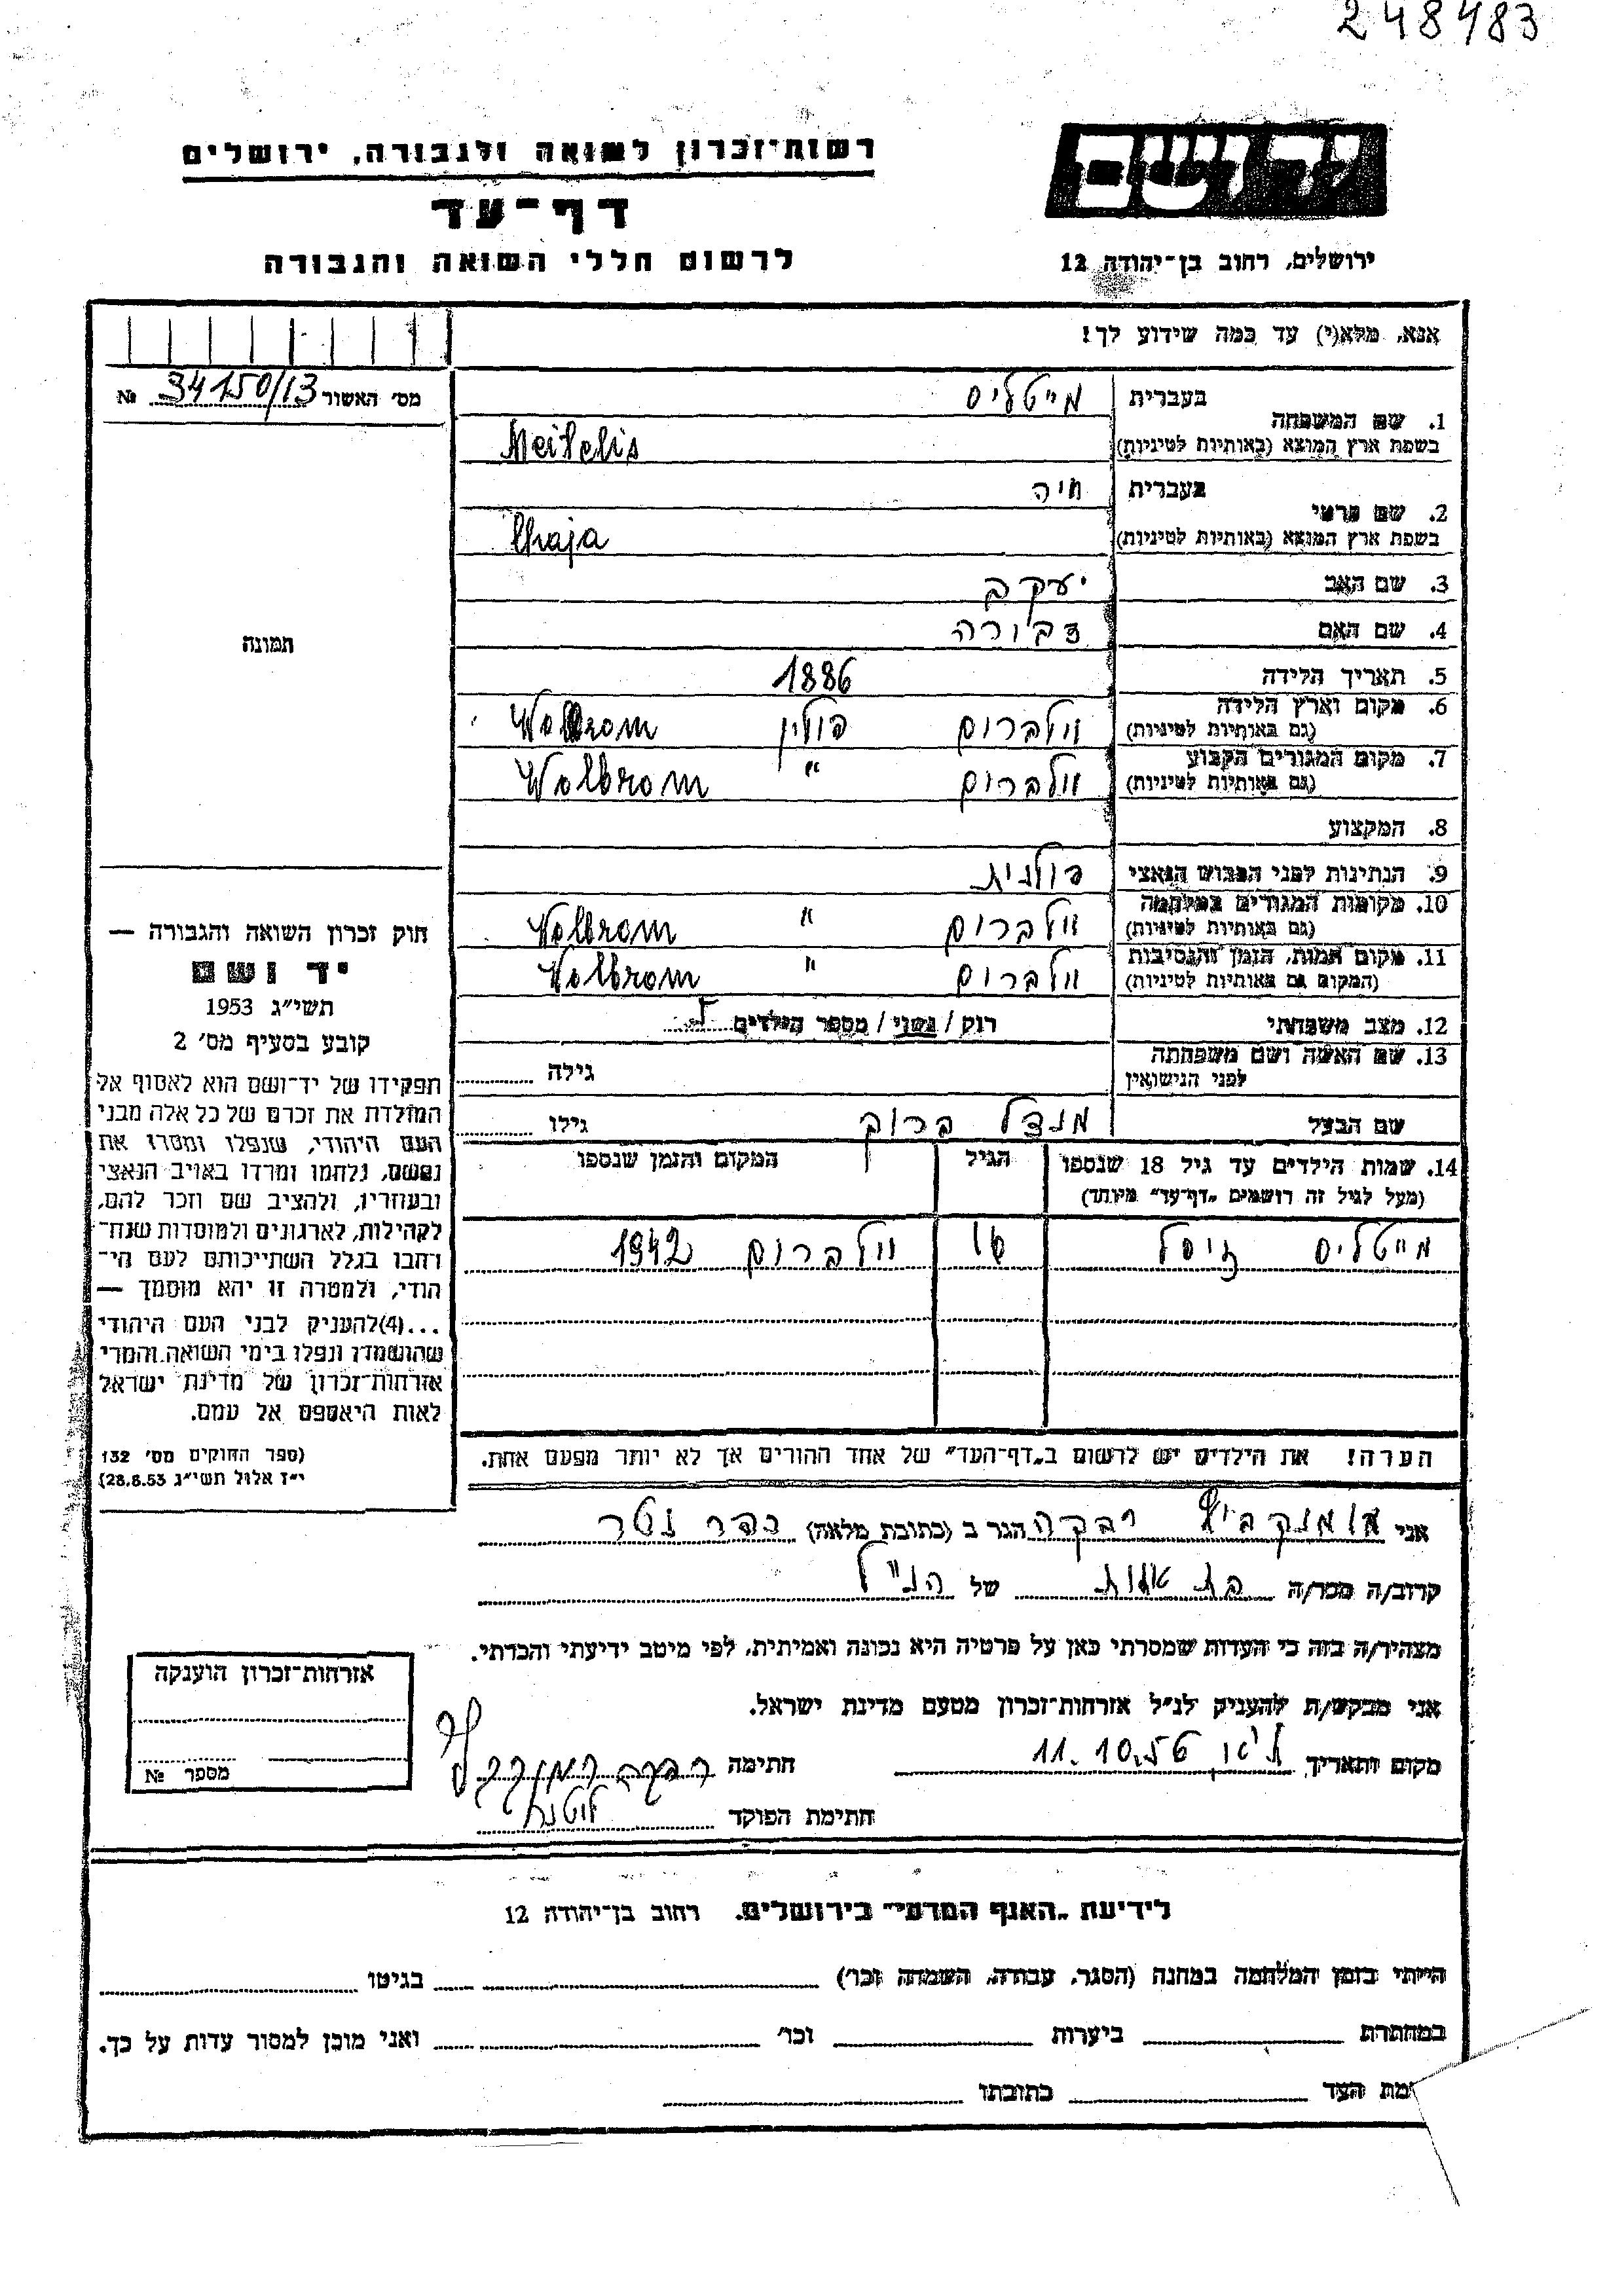 248483
רשות־זכרון לשואה ולגבורה, ירושלים
יד ושם
דף־עד
לרשום חללי השואה והגבורה
ירושלים, רחוב בן־יהודה 12
אנא, מלא(י) עד כמה שידוע לך!
מס׳ האשור 34150/13 №
1. שם המשפחה
בעברית מייטליס
בשפת ארץ המוצא (באותיות לטיניות) Meitelis
2. שם פרטי
בעברית חיה
בשפת ארץ המוצא (באותיות לטיניות) Chaja
3. שם האב יעקב
4. שם האם דבורה
תמונה
5. תאריך הלידה 1886
6. מקום וארץ הלידה וולברום פולין Wolbrom
(גם באותיות לטיניות)
7. מקום המגורים הקבוע וולברום " Wolbrom
(גם באותיות לטיניות)
8. המקצוע
9. הנתינות לפני הכבוש הנאצי פולנית
10. מקומות המגורים במלחמה וולברום " Wolbrom
(גם באותיות לטיניות)
11. מקום המות, הזמן והנסיבות וולברום " Wolbrom
(המקום גם באותיות לטיניות)
12. מצב משפחתי רוק / נשוי / מספר הילדים
13. שם האשה ושם משפחתה
לפני הנישואין גילה
שם הבעל מנדל ברוך גילו
14. שמות הילדים עד גיל 18 שנספו הגיל המקום והזמן שנספו
(מעל לגיל זה רושמים „דף־עד״ מיוחד)
מייטליס זיסל 16 וולברום 1942
הערה! את הילדים יש לרשום ב„דף־העד״ של אחד ההורים אך לא יותר מפעם אחת.
חוק זכרון השואה והגבורה —
יד ושם
תשי״ג 1953
קובע בסעיף מס׳ 2
תפקידו של יד־ושם הוא לאסוף אל
המולדת את זכרם של כל אלה מבני
העם היהודי, שנפלו ומסרו את
נפשם, נלחמו ומרדו באויב הנאצי
ובעוזריו, ולהציב שם וזכר להם,
לקהילות, לארגונים ולמוסדות שנח־
רבו בגלל השתייכותם לעם הי־
הודי, ולמטרה זו יהא מוסמך —
...(4)להעניק לבני העם היהודי
שהושמדו ונפלו בימי השואה והמרי
אזרחות־זכרון של מדינת ישראל
לאות היאספם אל עמם.
(ספר החוקים מס׳ 132
י״ז אלול תשי״ג 28.8.53)
אני רבקה הגר ב (כתובת מלאה) כפר נטר
קרוב/ה מכר/ה בת אחות של הנ״ל
מצהיר/ה בזה כי העדות שמסרתי כאן על פרטיה היא נכונה ואמיתית, לפי מיטב ידיעתי והכרתי.
אני מבקש/ת להעניק לנ״ל אזרחות־זכרון מטעם מדינת ישראל.
מקום ותאריך 11.10.56 חתימה רבקה
חתימת הפוקד
אזרחות־זכרון הוענקה
מספר №
לידיעת „האגף המדעי״ בירושלים, רחוב בן־יהודה 12
הייתי בזמן המלחמה במחנה (הסגר, עבודה, השמדה וכו׳) בגיטו
במחתרת ביערות וכו׳ ואני מוכן למסור עדות על כך.
ימת העד כתובתו